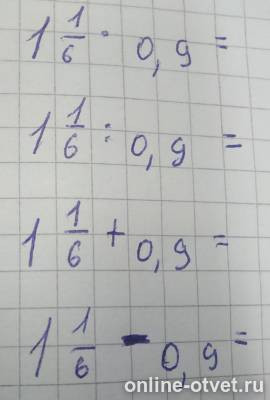 1 1/6 · 0,9 =
1 1/6 : 0,9 =
1 1/6 + 0,9 =
1 1/6 - 0,9 =
online-otvet.ru